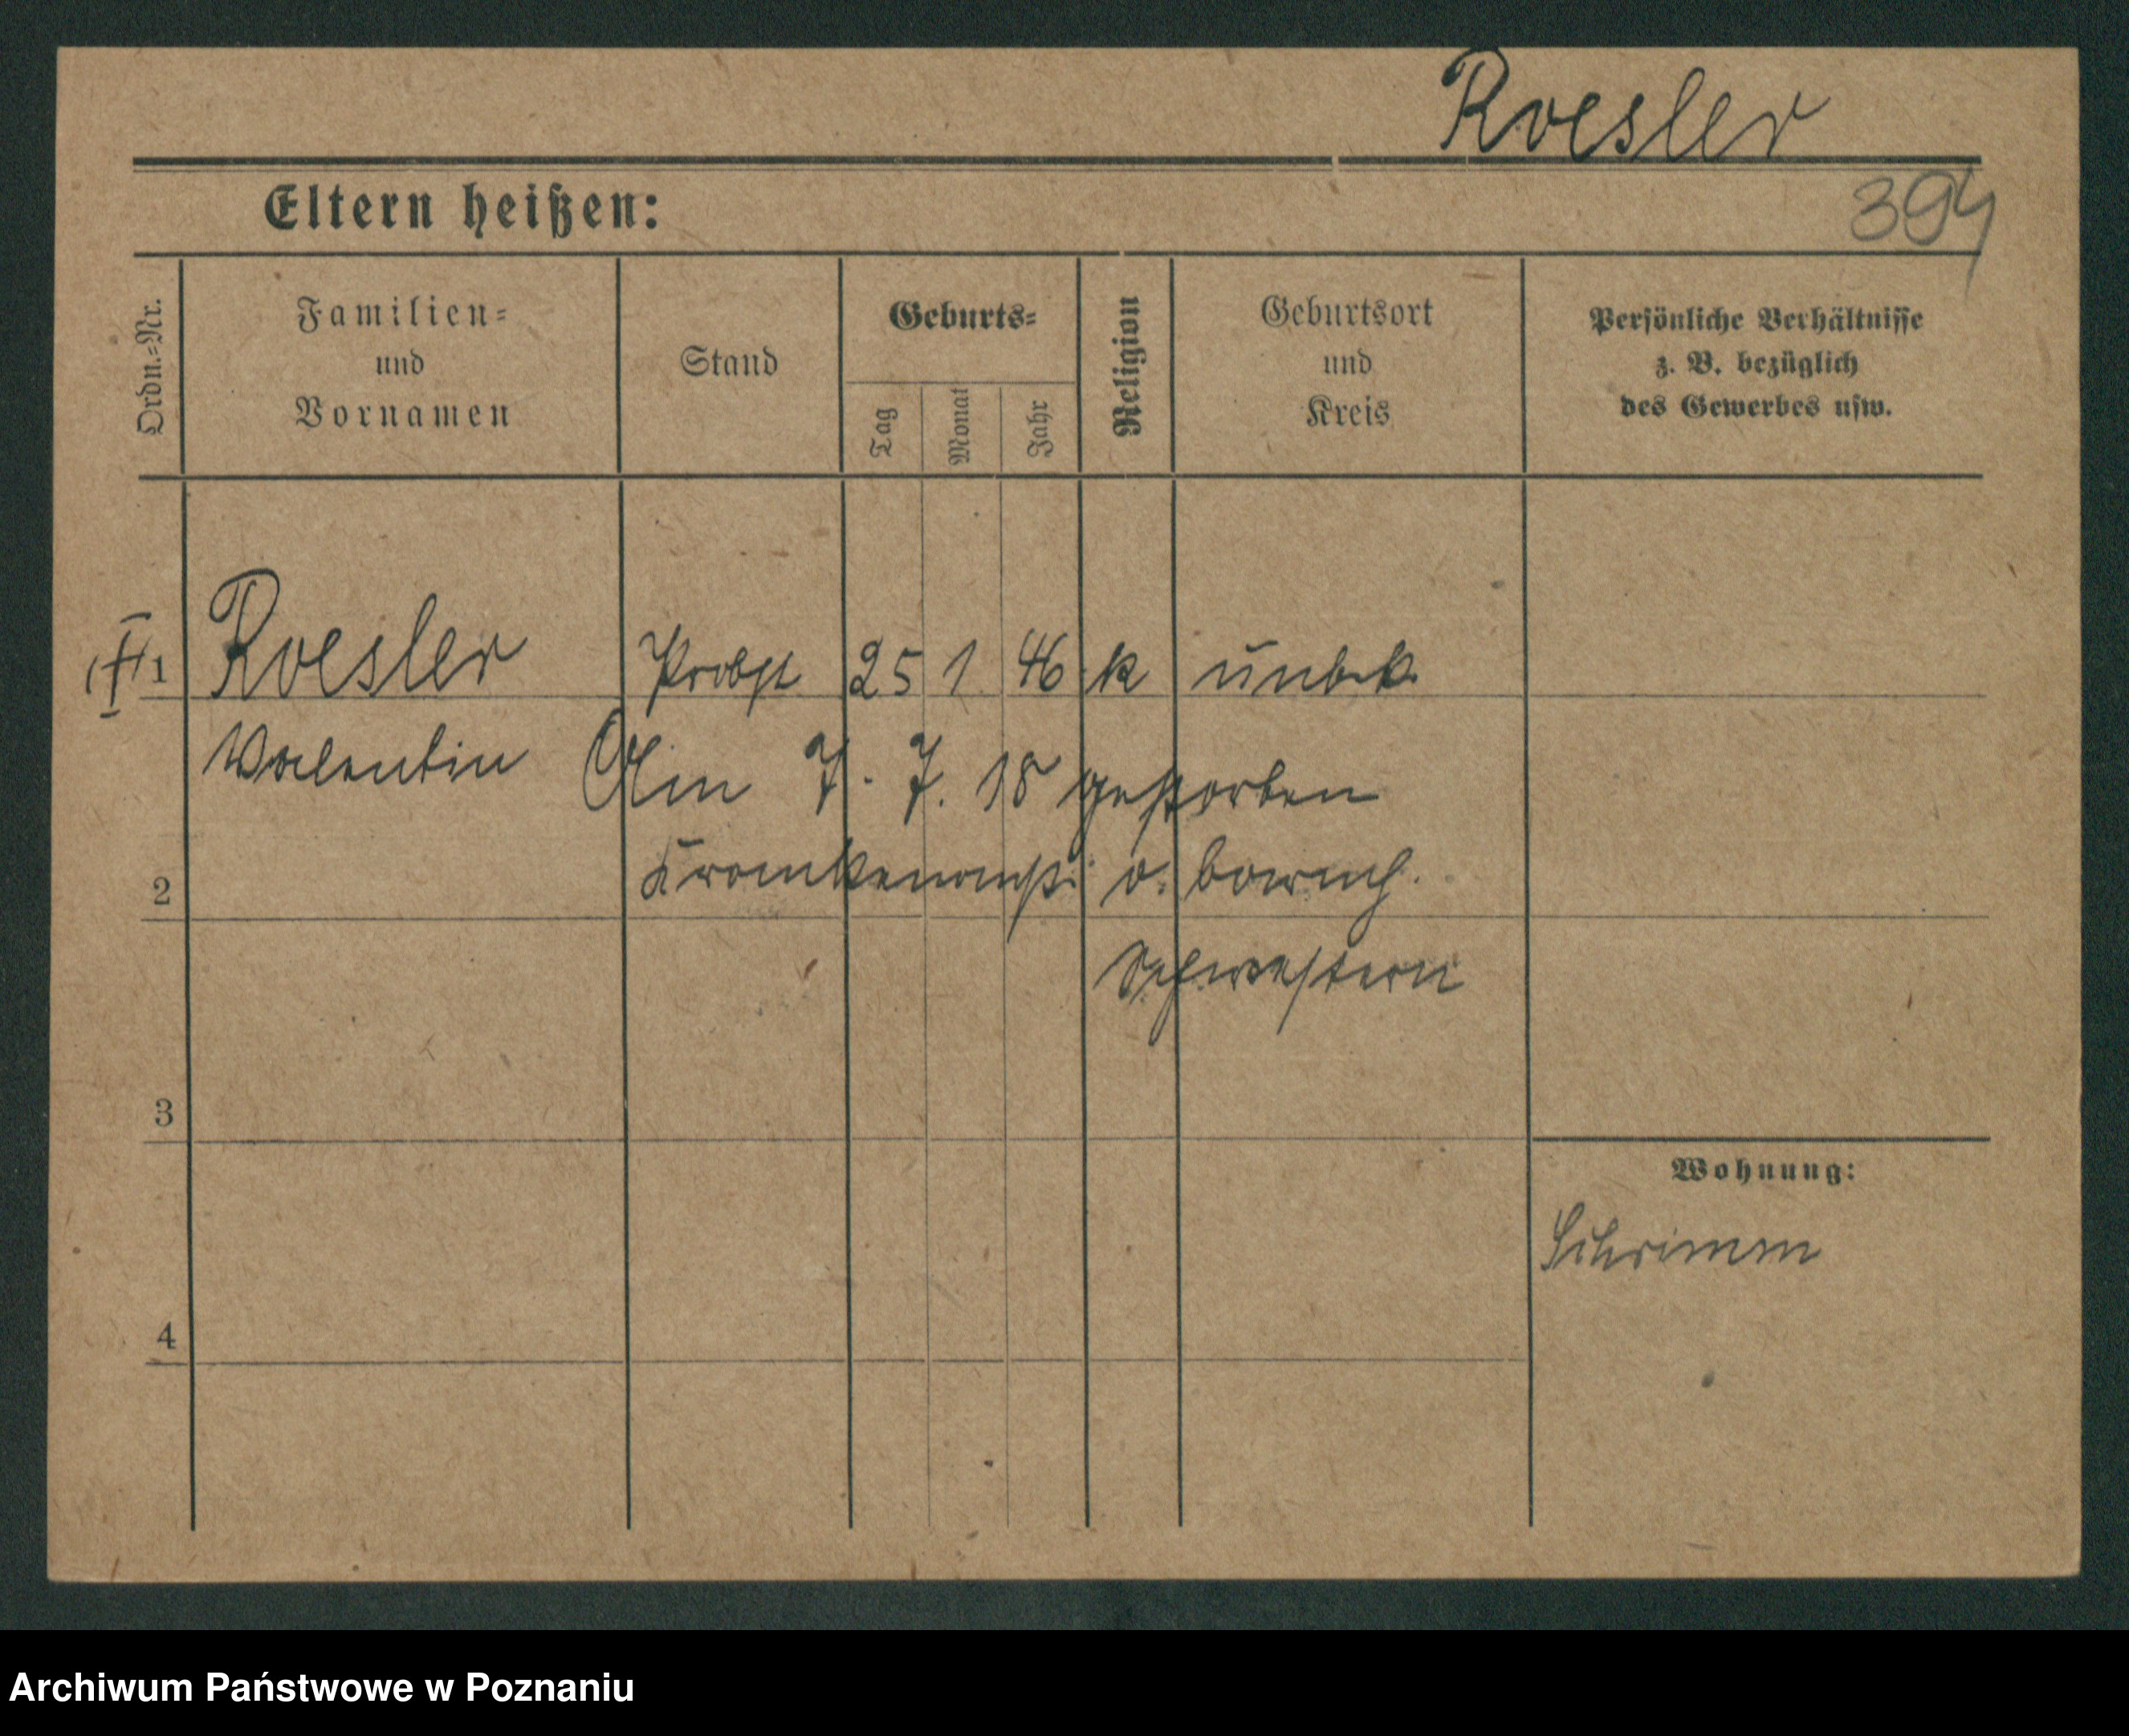 Roesler
Eltern heißen:
394
Ordn.-Nr.
Familien-
und
Vornamen
Stand
Geburts-
Tag
Monat
Jahr
Religion
Geburtsort
und
Kreis
Persönliche Verhältnisse
z. B. bezüglich
des Gewerbes usw.
1 Roesler Probst 25 1 46 k unbek.
Valentin Am 7. 7. 18 gestorben
2 Krankenanst. d. barmh.
Schwestern
3
Wohnung:
Schrimm
4
Archiwum Państwowe w Poznaniu